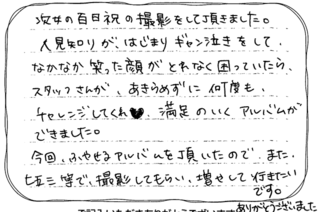 次女の百日祝の撮影をして頂きました。
人見知りが、はじまりギャン泣きをして、
なかなか笑った顔がとれなく困っていたら、
スタッフさんが、あきらめずに何度も、
チャレンジしてくれ♥、満足のいくアルバムが
できました。
今回、ふやせるアルバムを頂いたので、また、
七五三等で、撮影してもらい、増せして行きたい
です。
ありがとうございました